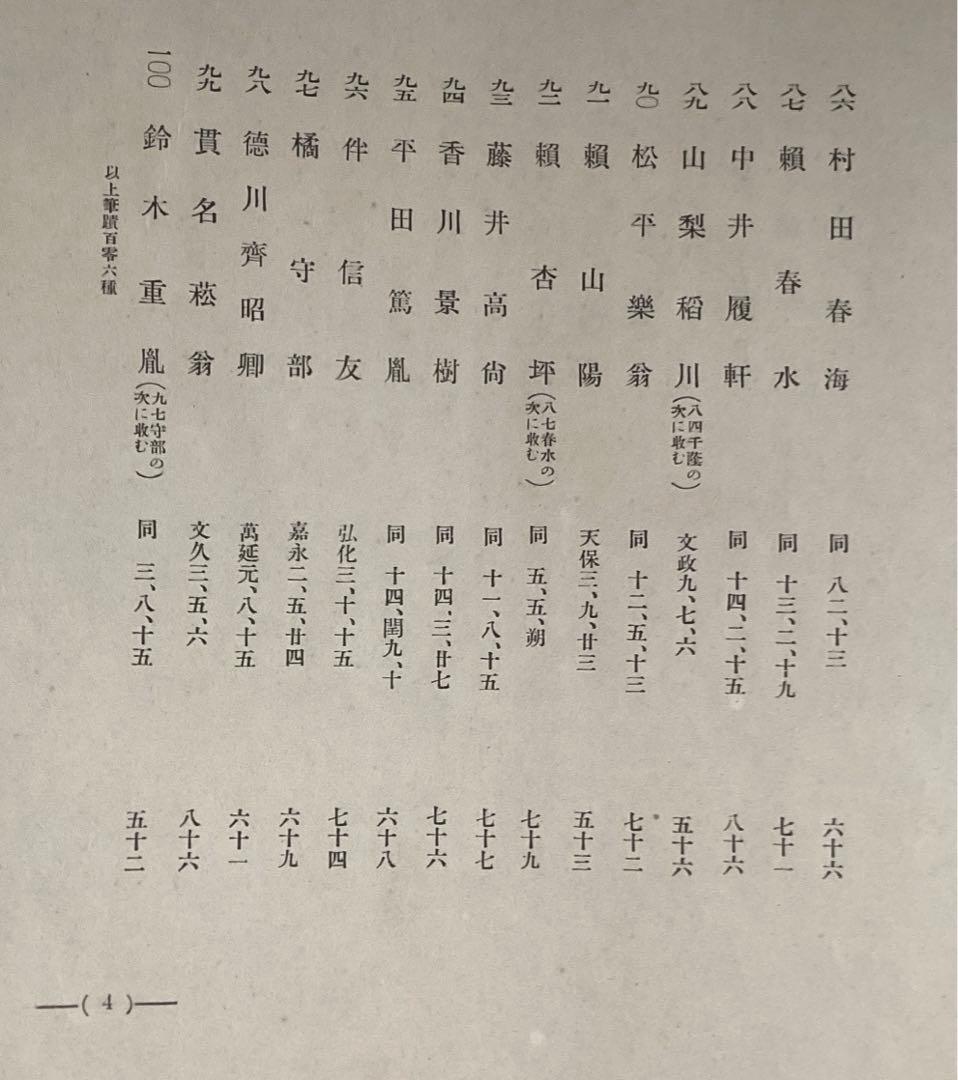 八六 村田春海 同 八二、十三 六十六
八七 賴春水 同 十三、二、十九 七十一
八八 中井履軒 同 十四、二、十五 八十六
八九 山梨稻川(八四千蔭の次に收む) 文政九、七、六 五十六
九〇 松平樂翁 同 十二、五、十三 七十二
九一 賴山陽 天保三、九、廿三 五十三
九二 賴杏坪(八七春水の次に收む) 同 五、五、朔 七十九
九三 藤井高尙 同 十一、八、十五 七十七
九四 香川景樹 同 十四、三、廿七 七十六
九五 平田篤胤 同 十四、閏九、十 六十八
九六 伴信友 弘化三、十、十五 七十四
九七 橘守部 嘉永二、五、廿四 六十九
九八 德川齊昭卿 萬延元、八、十五 六十一
九九 貫名菘翁 文久三、五、六 八十六
一〇〇 鈴木重胤(九七守部の次に收む) 同 三、八、十五 五十二
以上筆蹟百零六種
(4)